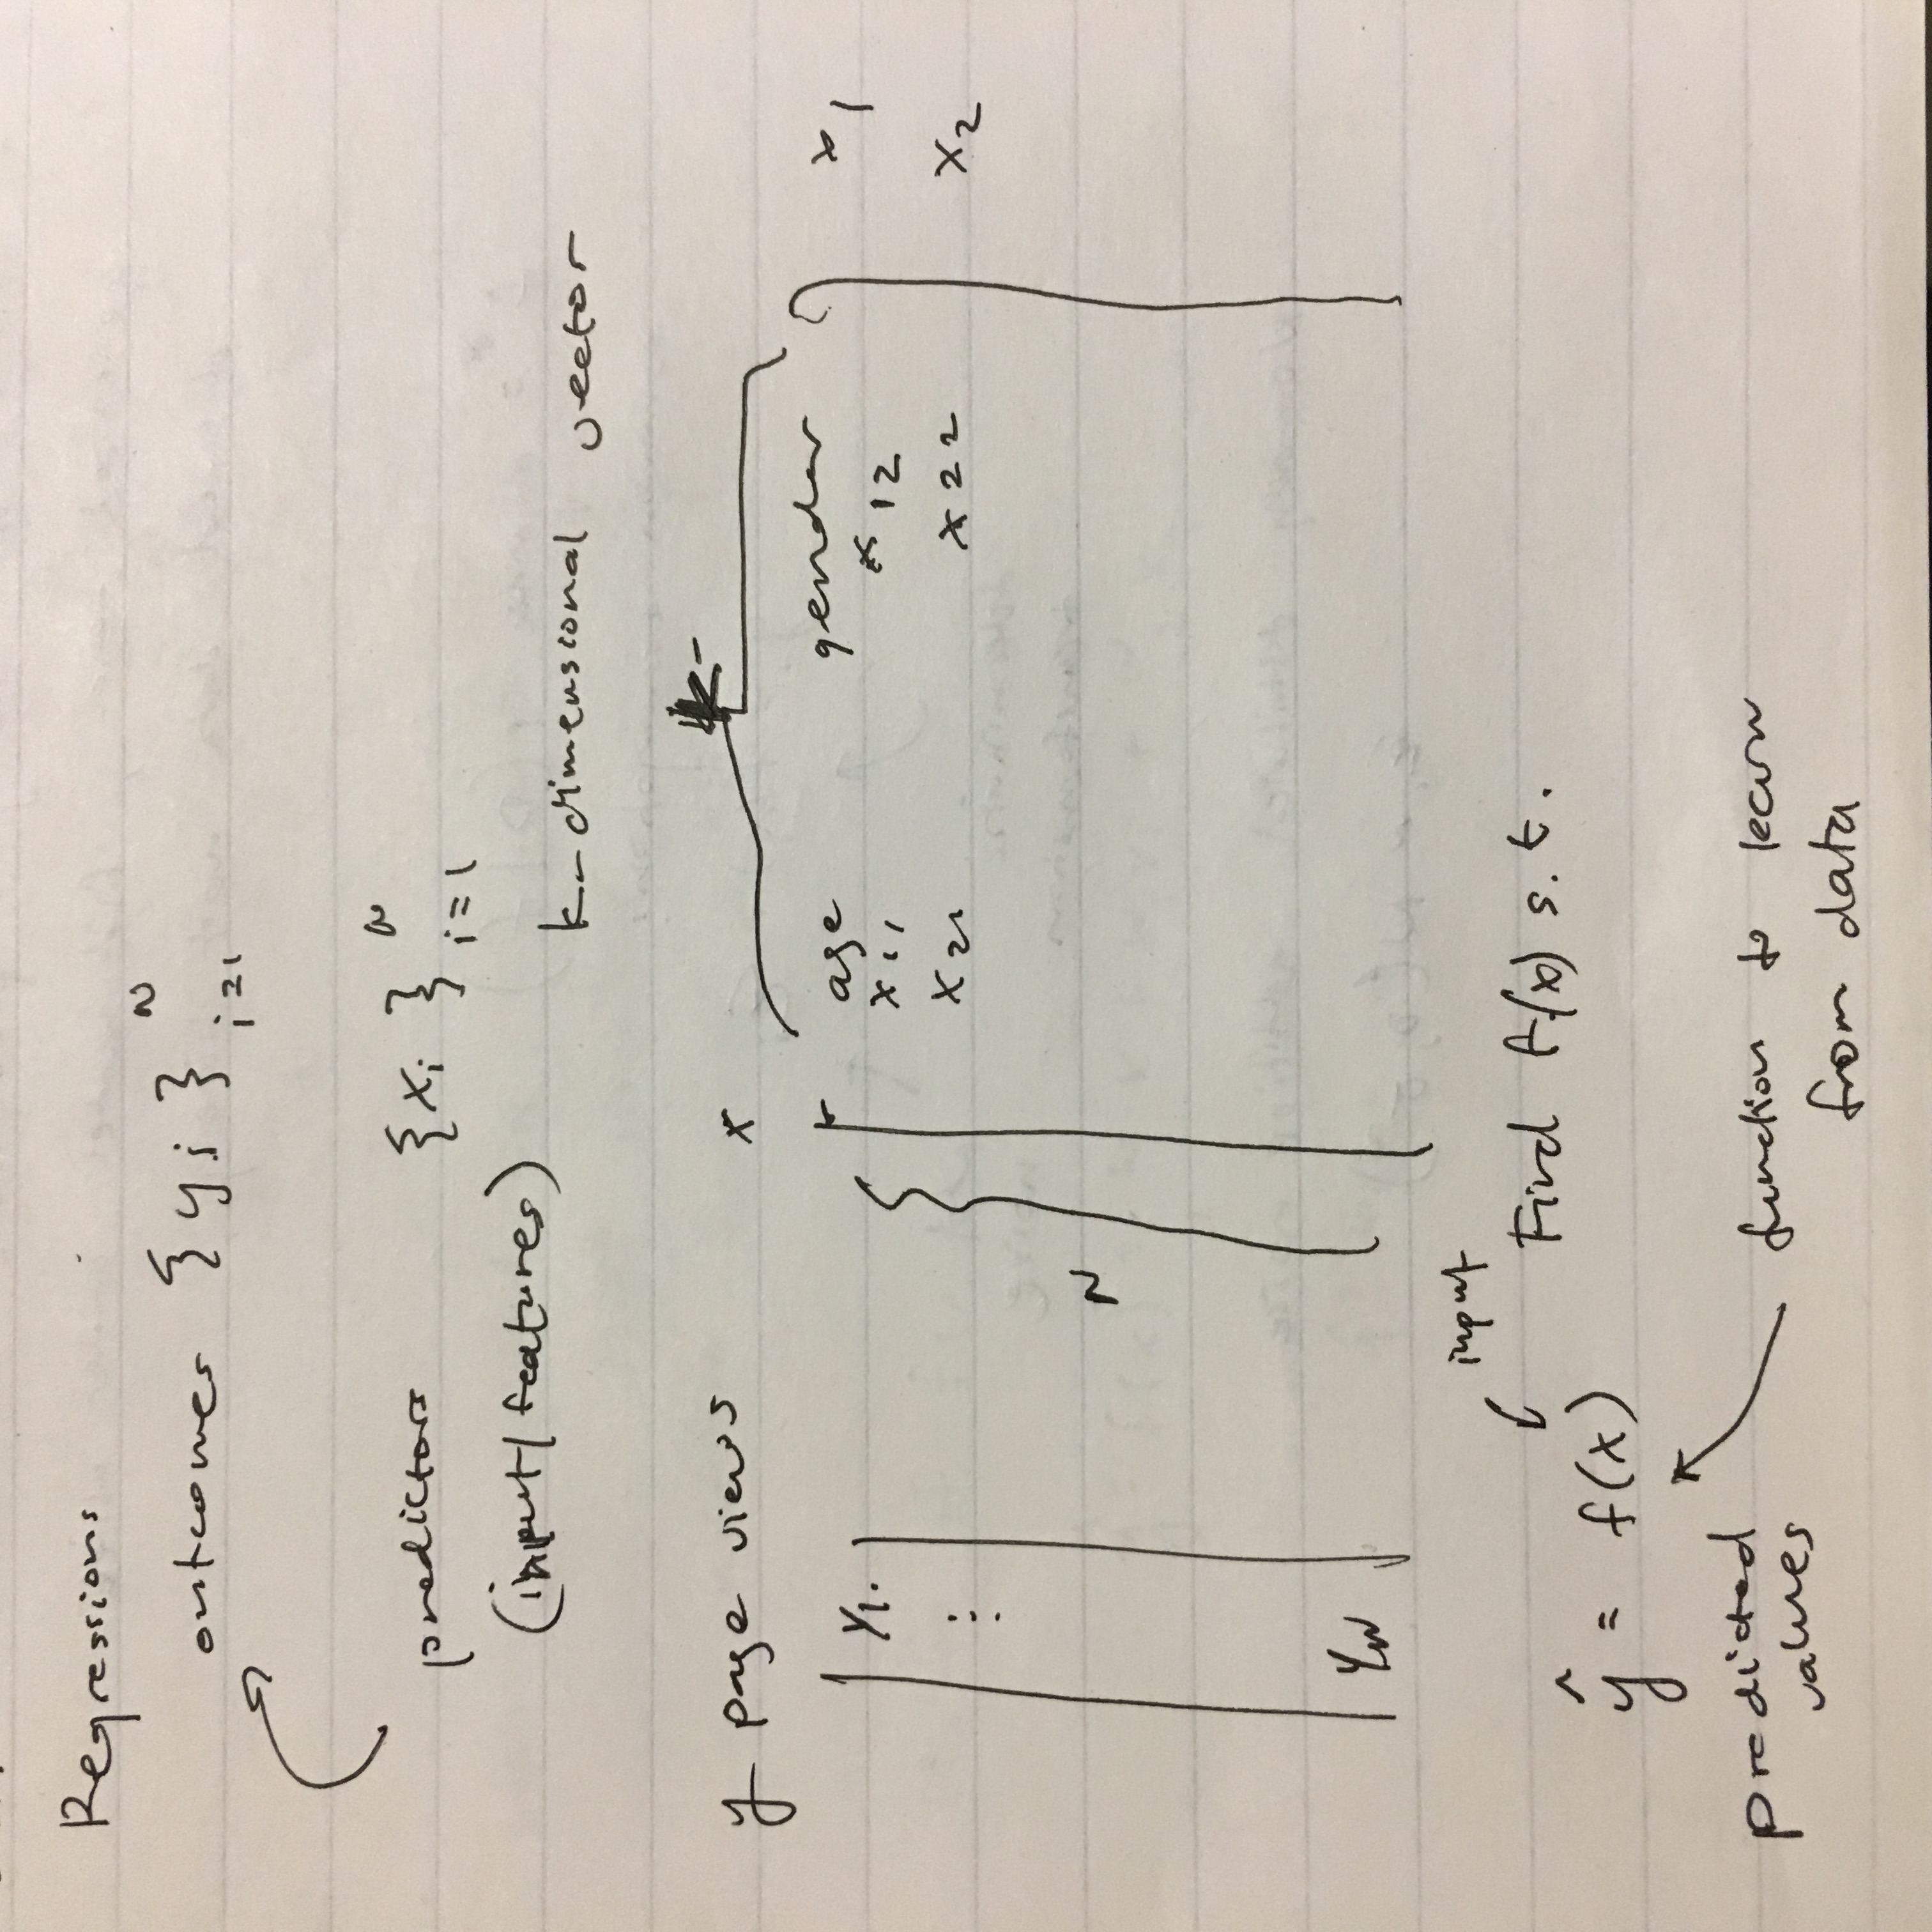 Regressions
outcomes {yi} N i=1
predictors {xi} N i=1
(input/features)
k-dimensional vector
k-
y page views x
age gender
y1. x11 x12 x1
⋮ x21 x22 x2
N
yN
input
Find f(x) s.t.
ŷ = f(x)
predicted values
function to learn
from data